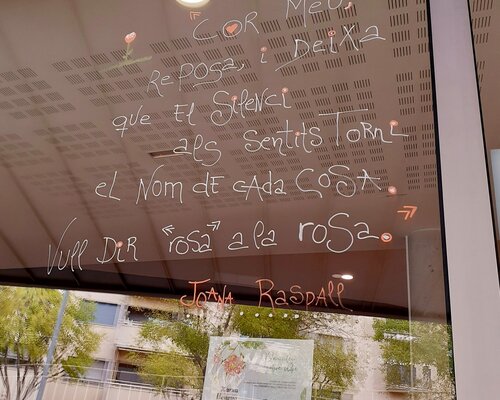 "COR MEU,
REPOSA, i DEIXA
quE El SilENCi
als sentits TORNi
El NOM DE CADA COSA.
Vull DiR «rosa» a la roSa.»
JOANA RASPALL